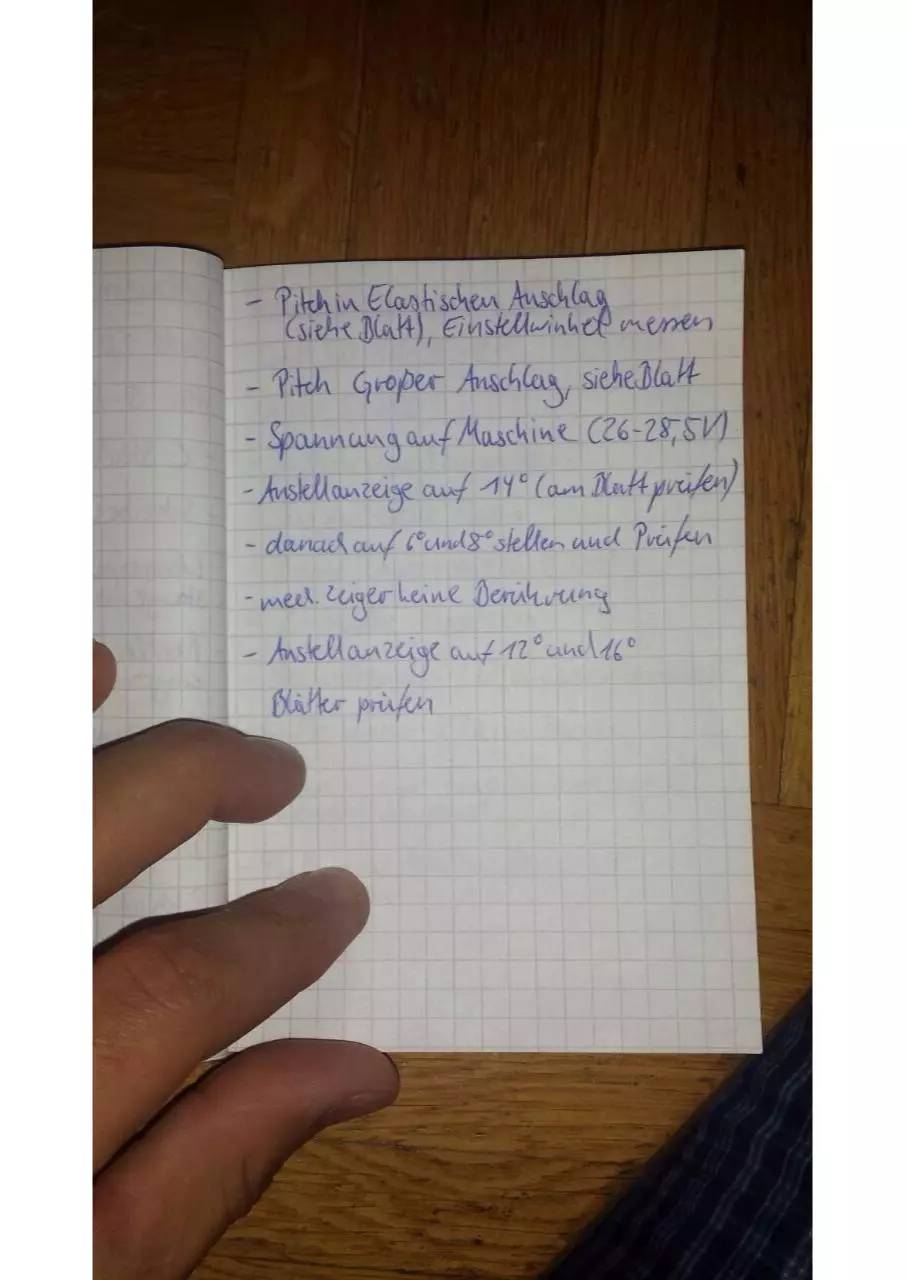 - Pitch in Elastischen Anschlag
(siehe Blatt), Einstellwinkel messen
- Pitch Großer Anschlag, siehe Blatt
- Spannung auf Maschine (26-28,5V)
- Anstellanzeige auf 14° (am Blatt prüfen)
- danach auf 6° und 8° stellen und Prüfen
- mech. Zeiger keine Berührung
- Anstellanzeige auf 12° und 16°
Blätter prüfen